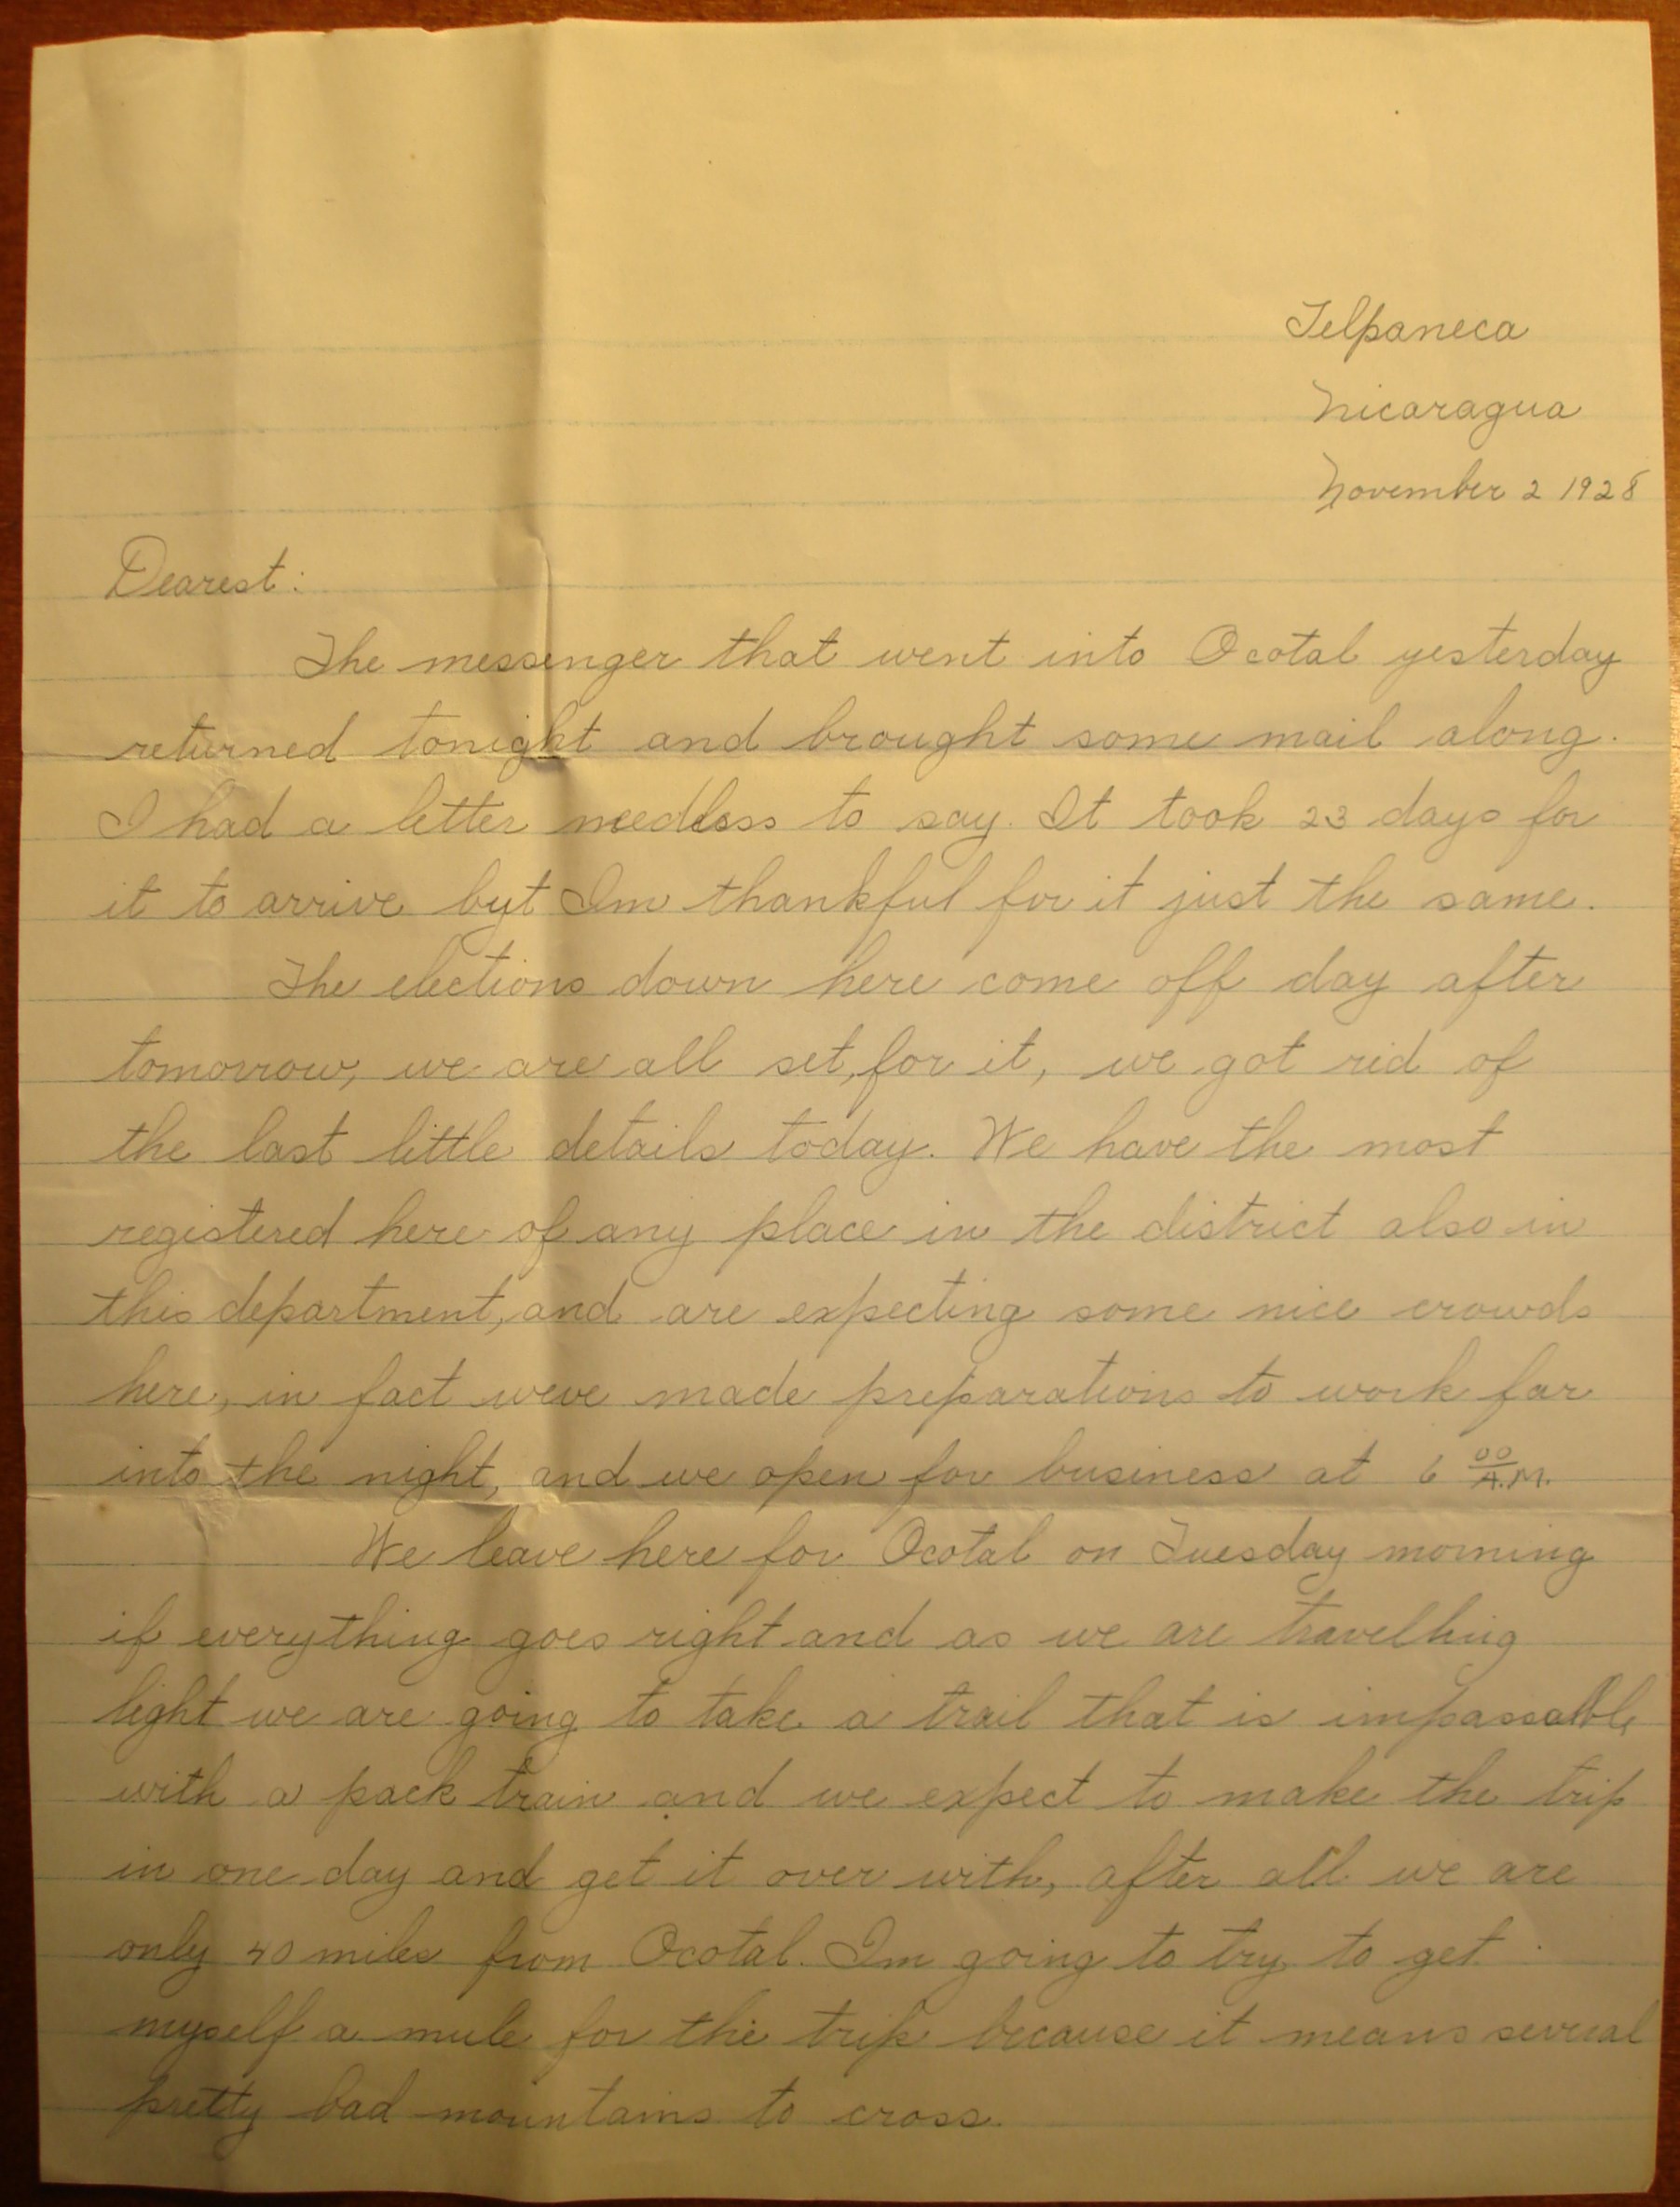 Telpaneca
Nicaragua
November 2 1928
Dearest:
The messenger that went into Ocotal yesterday
returned tonight and brought some mail along.
I had a letter needless to say. It took 23 days for
it to arrive byt Im thankful for it just the same.
The elections down here come off day after
tomorrow, we are all set, for it, we got rid of
the last little details today. We have the most
registered here of any place in the district also in
this department, and are expecting some nice crowds
here, in fact weve made preparations to work far
into the night, and we open for business at 6 00 A.M.
We leave here for Ocotal on Tuesday morning
if everything goes right and as we are travelling
light we are going to take a trail that is impassable
with a pack train and we expect to make the trip
in one day and get it over with, after all we are
only 40 miles from Ocotal. Im going to try to get
myself a mule for the trip because it means several
pretty bad mountains to cross.